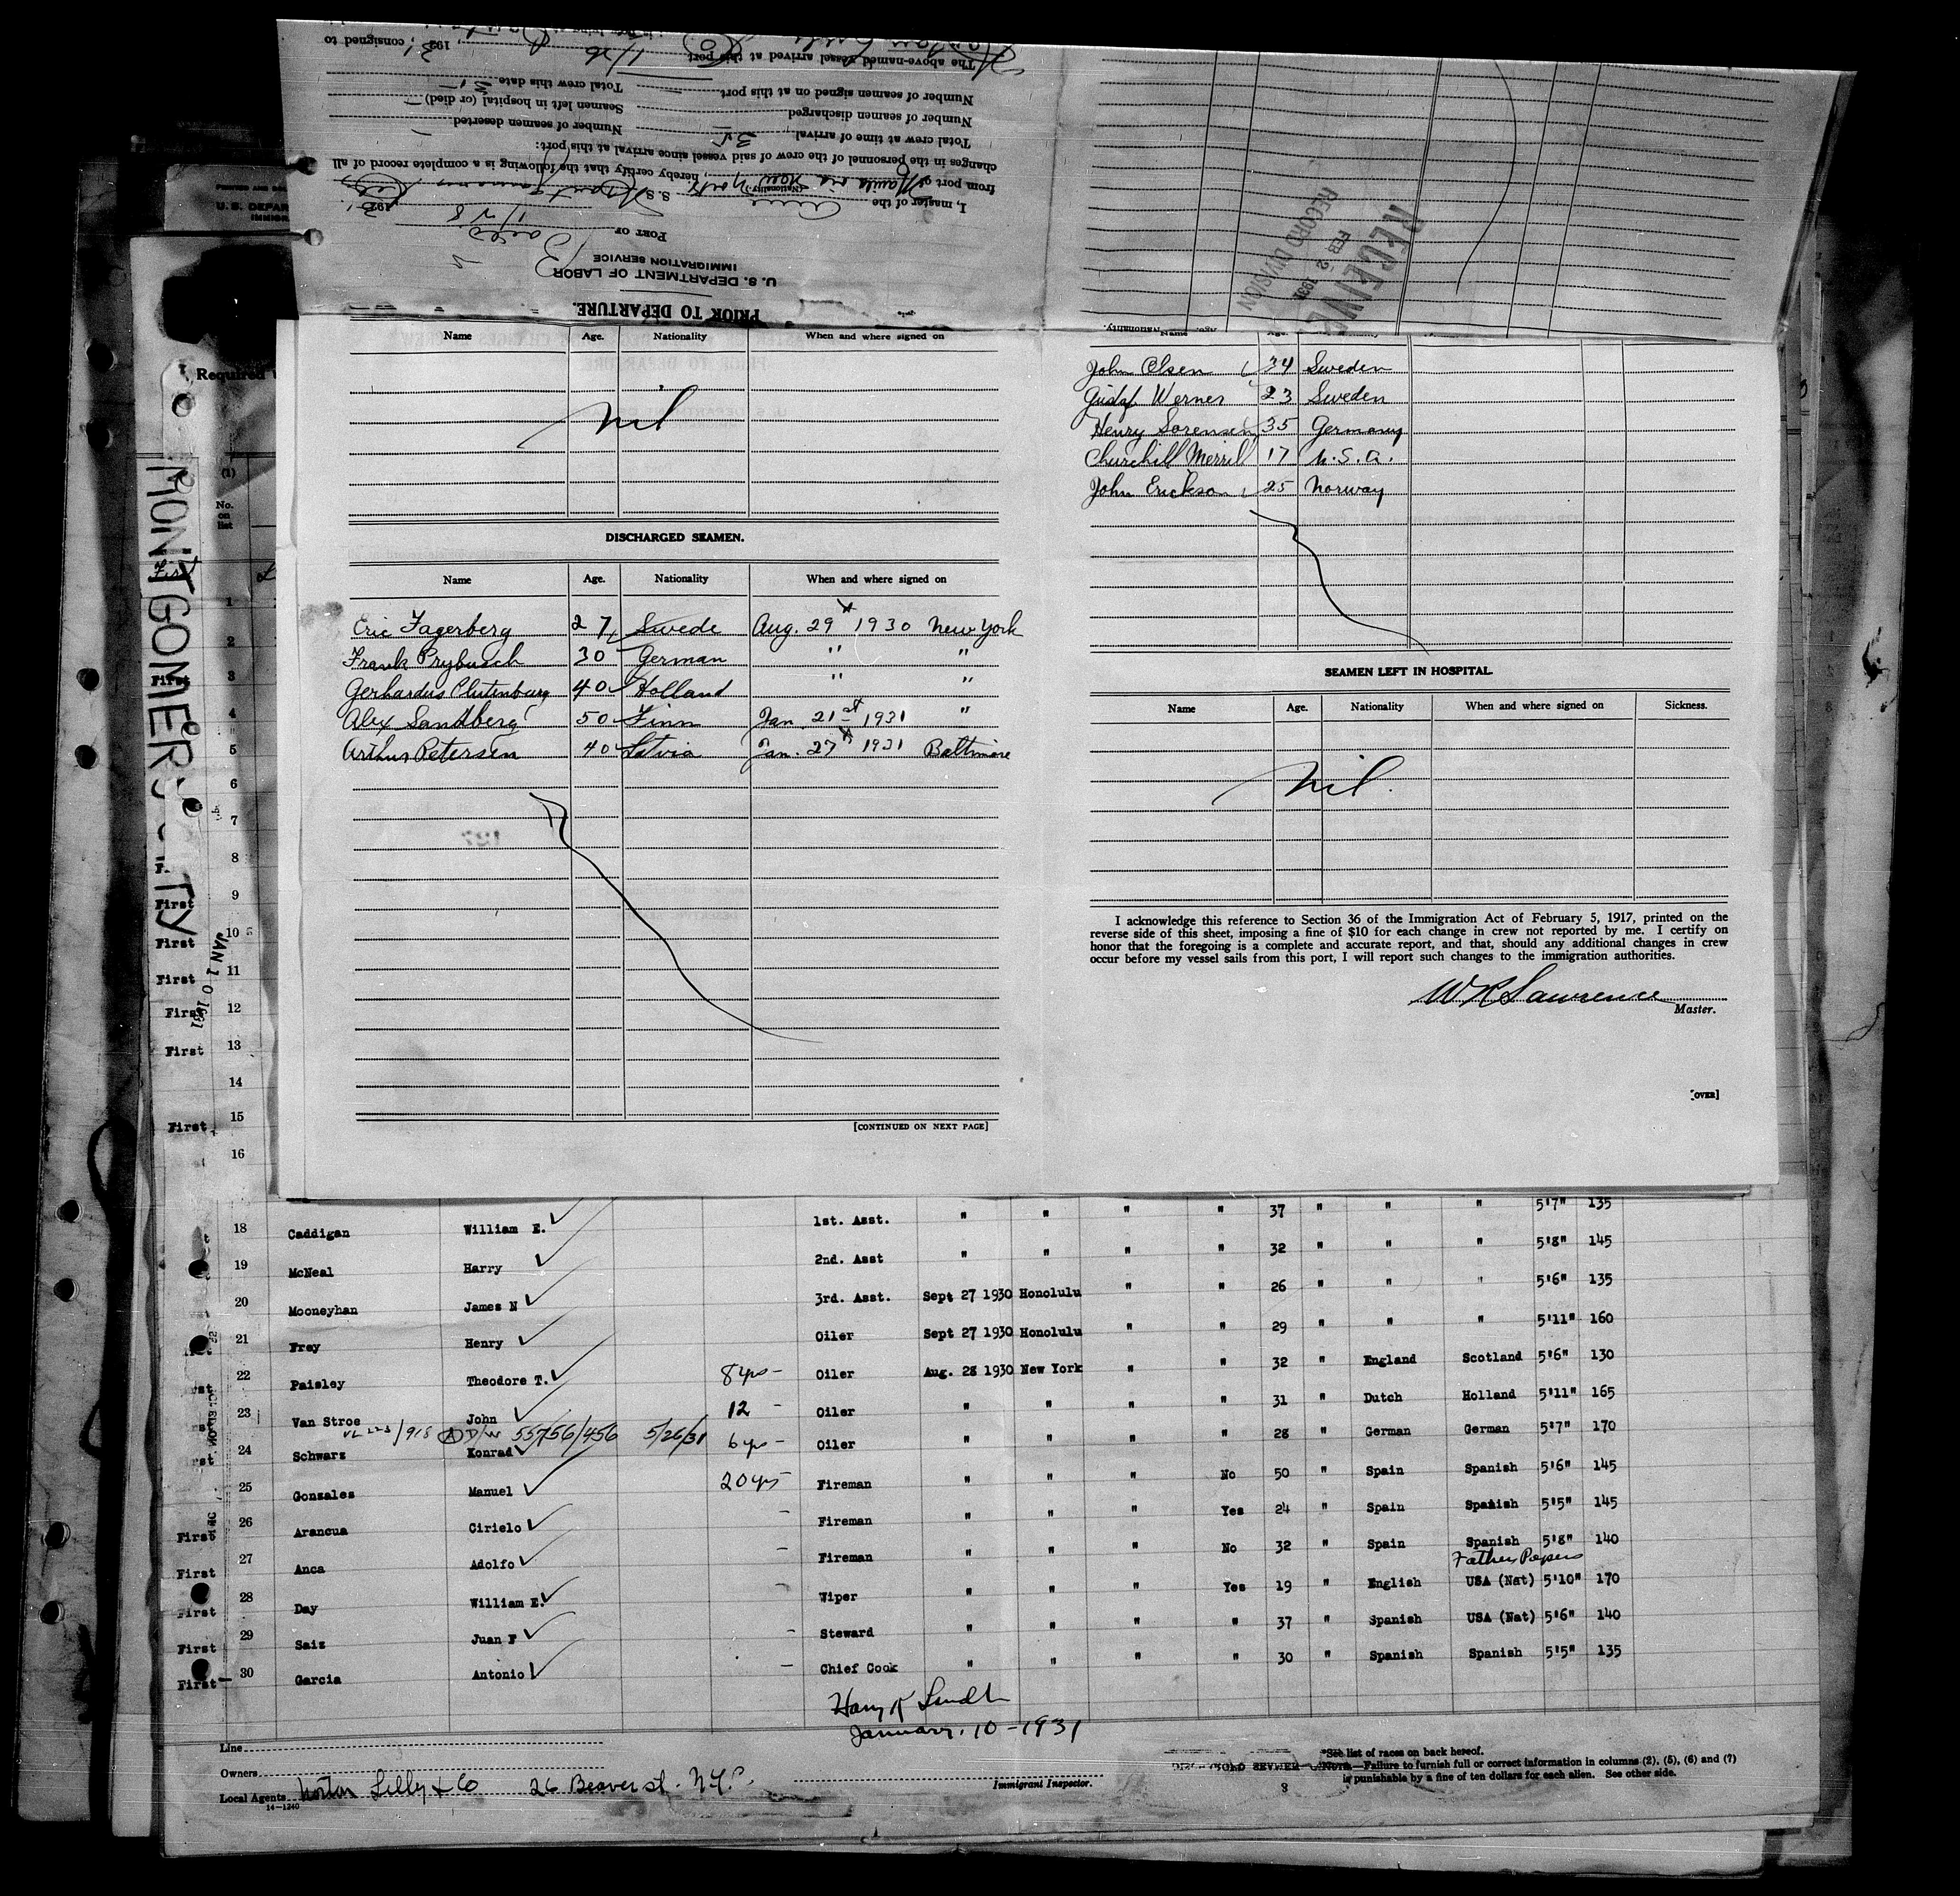 consigned to
The above-named vessel arrived at this port
Total crew this date
Number of seamen signed on at this port
Seamen left in hospital (or died)
Number of seamen discharged
Number of seamen deserted
Total crew at time of arrival, 35
changes in the personnel of the crew of said vessel since arrival at this port:
from port of Manila via New York (Nationality), hereby certify that the following is a complete record of all
I, master of the S. S.
PORT OF
IMMIGRATION SERVICE
U. S. DEPARTMENT OF LABOR
PRIOR TO DEPARTURE.
RECEIVE
FEB 2 1931
RECORD DIVISION
U. S. DEPAR
Required
MONTGOMERY CITY
JAN 10 1931
(1)
No. on list
Name Age. Nationality When and where signed on
nil
DISCHARGED SEAMEN.
Name Age. Nationality When and where signed on
Eric Fagerberg 27 Swede Aug. 29 1930 New York
Frank Prybusch 30 German " "
Gerhardus Clutenburg 40 Holland " "
Alex Sandberg 50 Finn Jan 21st 1931 "
Arthur Petersen 40 Latvia Jan. 27 1931 Baltimore
[CONTINUED ON NEXT PAGE]
John Olsen 34 Sweden
Gustaf Werner 23 Sweden
Henry Sorensen 35 Germany
Churchill Merril 17 U.S.A.
John Erickson 25 Norway
SEAMEN LEFT IN HOSPITAL.
Name Age. Nationality When and where signed on Sickness.
nil.
I acknowledge this reference to Section 36 of the Immigration Act of February 5, 1917, printed on the
reverse side of this sheet, imposing a fine of $10 for each change in crew not reported by me. I certify on
honor that the foregoing is a complete and accurate report, and that, should any additional changes in crew
occur before my vessel sails from this port, I will report such changes to the immigration authorities.
W K Lawrence
Master.
[OVER]
1
2
First 3
4
5
6
7
8
First 9
First 10
First 11
First 12
First 13
14
First 15
16
18 Caddigan William E. 1st. Asst. " " " " 37 " " " 5'7" 135
19 McNeal Harry 2nd. Asst " " " " 32 " " " 5'8" 145
20 Mooneyhan James N 3rd. Asst. Sept 27 1930 Honolulu " " 26 " " " 5'6" 135
21 Frey Henry Oiler Sept 27 1930 Honolulu " " 29 " " " 5'11" 160
22 Paisley Theodore T. 8 yrs - Oiler Aug. 28 1930 New York " " 32 " England Scotland 5'6" 130
23 Van Stroe John 12 - Oiler " " " " 31 " Dutch Holland 5'11" 165
55756/456 5/26/31
24 Schwarz Konrad 6 yrs - Oiler " " " " 28 " German German 5'7" 170
25 Gonzales Manuel 20 yrs - Fireman " " " No 50 " Spain Spanish 5'6" 145
First 26 Arancua Cirielo - Fireman " " " Yes 24 " Spain Spanish 5'5" 145
First 27 Anca Adolfo - Fireman " " " No 32 " Spain Spanish 5'8" 140
Fathers Papers
First 28 Day William E. - Wiper " " " Yes 19 " English USA (Nat) 5'10" 170
First 29 Saiz Juan F - Steward " " " " 37 " Spanish USA (Nat) 5'6" 140
First 30 Garcia Antonio - Chief Cook " " " " 30 " Spanish Spanish 5'5" 135
January. 10 - 1931
Line
Owners
Local Agents Norton Lilly & Co 26 Beaver st. N.Y.C.
14-1240
Immigrant Inspector.
*See list of races on back hereof.
NOTE.—Failure to furnish full or correct information in columns (2), (5), (6) and (7)
is punishable by a fine of ten dollars for each alien. See other side.